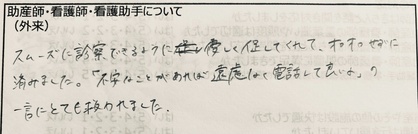 助産師・看護師・看護助手について
（外来）
スムーズに診察できるように優しく促してくれて、オロオロせずに
済みました。「不安なことがあれば遠慮なく電話して良いよ」の
一言にとても救われました。